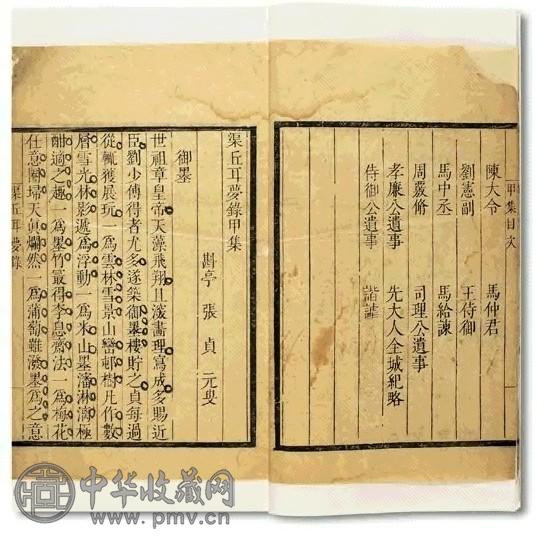 甲集目次
陳大令 馬仲君
劉憲副 王侍御
馬中丞 馬給諫
周嚴脩 司理公遺事
孝廉公遺事 先大人全城紀略
侍御公遺事 諧謔
渠丘耳夢錄甲集
斟亭 張貞 元叟
御墨
世祖章皇帝天藻飛翔且潑畵理寫成多賜近
臣劉少傅得者尤多遂築御墨樓貯之貞每過
從輒獲展玩一爲雲林雪景山巒邨樹凡作數
層雪光林影遞爲浮動一爲米山墨瀋淋漓極
酣適之趣一爲墨竹最得李息齋法一爲梅花
任意圈掃天眞爛然一爲蒲萄雖潑墨爲之意
渠丘耳夢錄
中华收藏网
www.pmv.cn